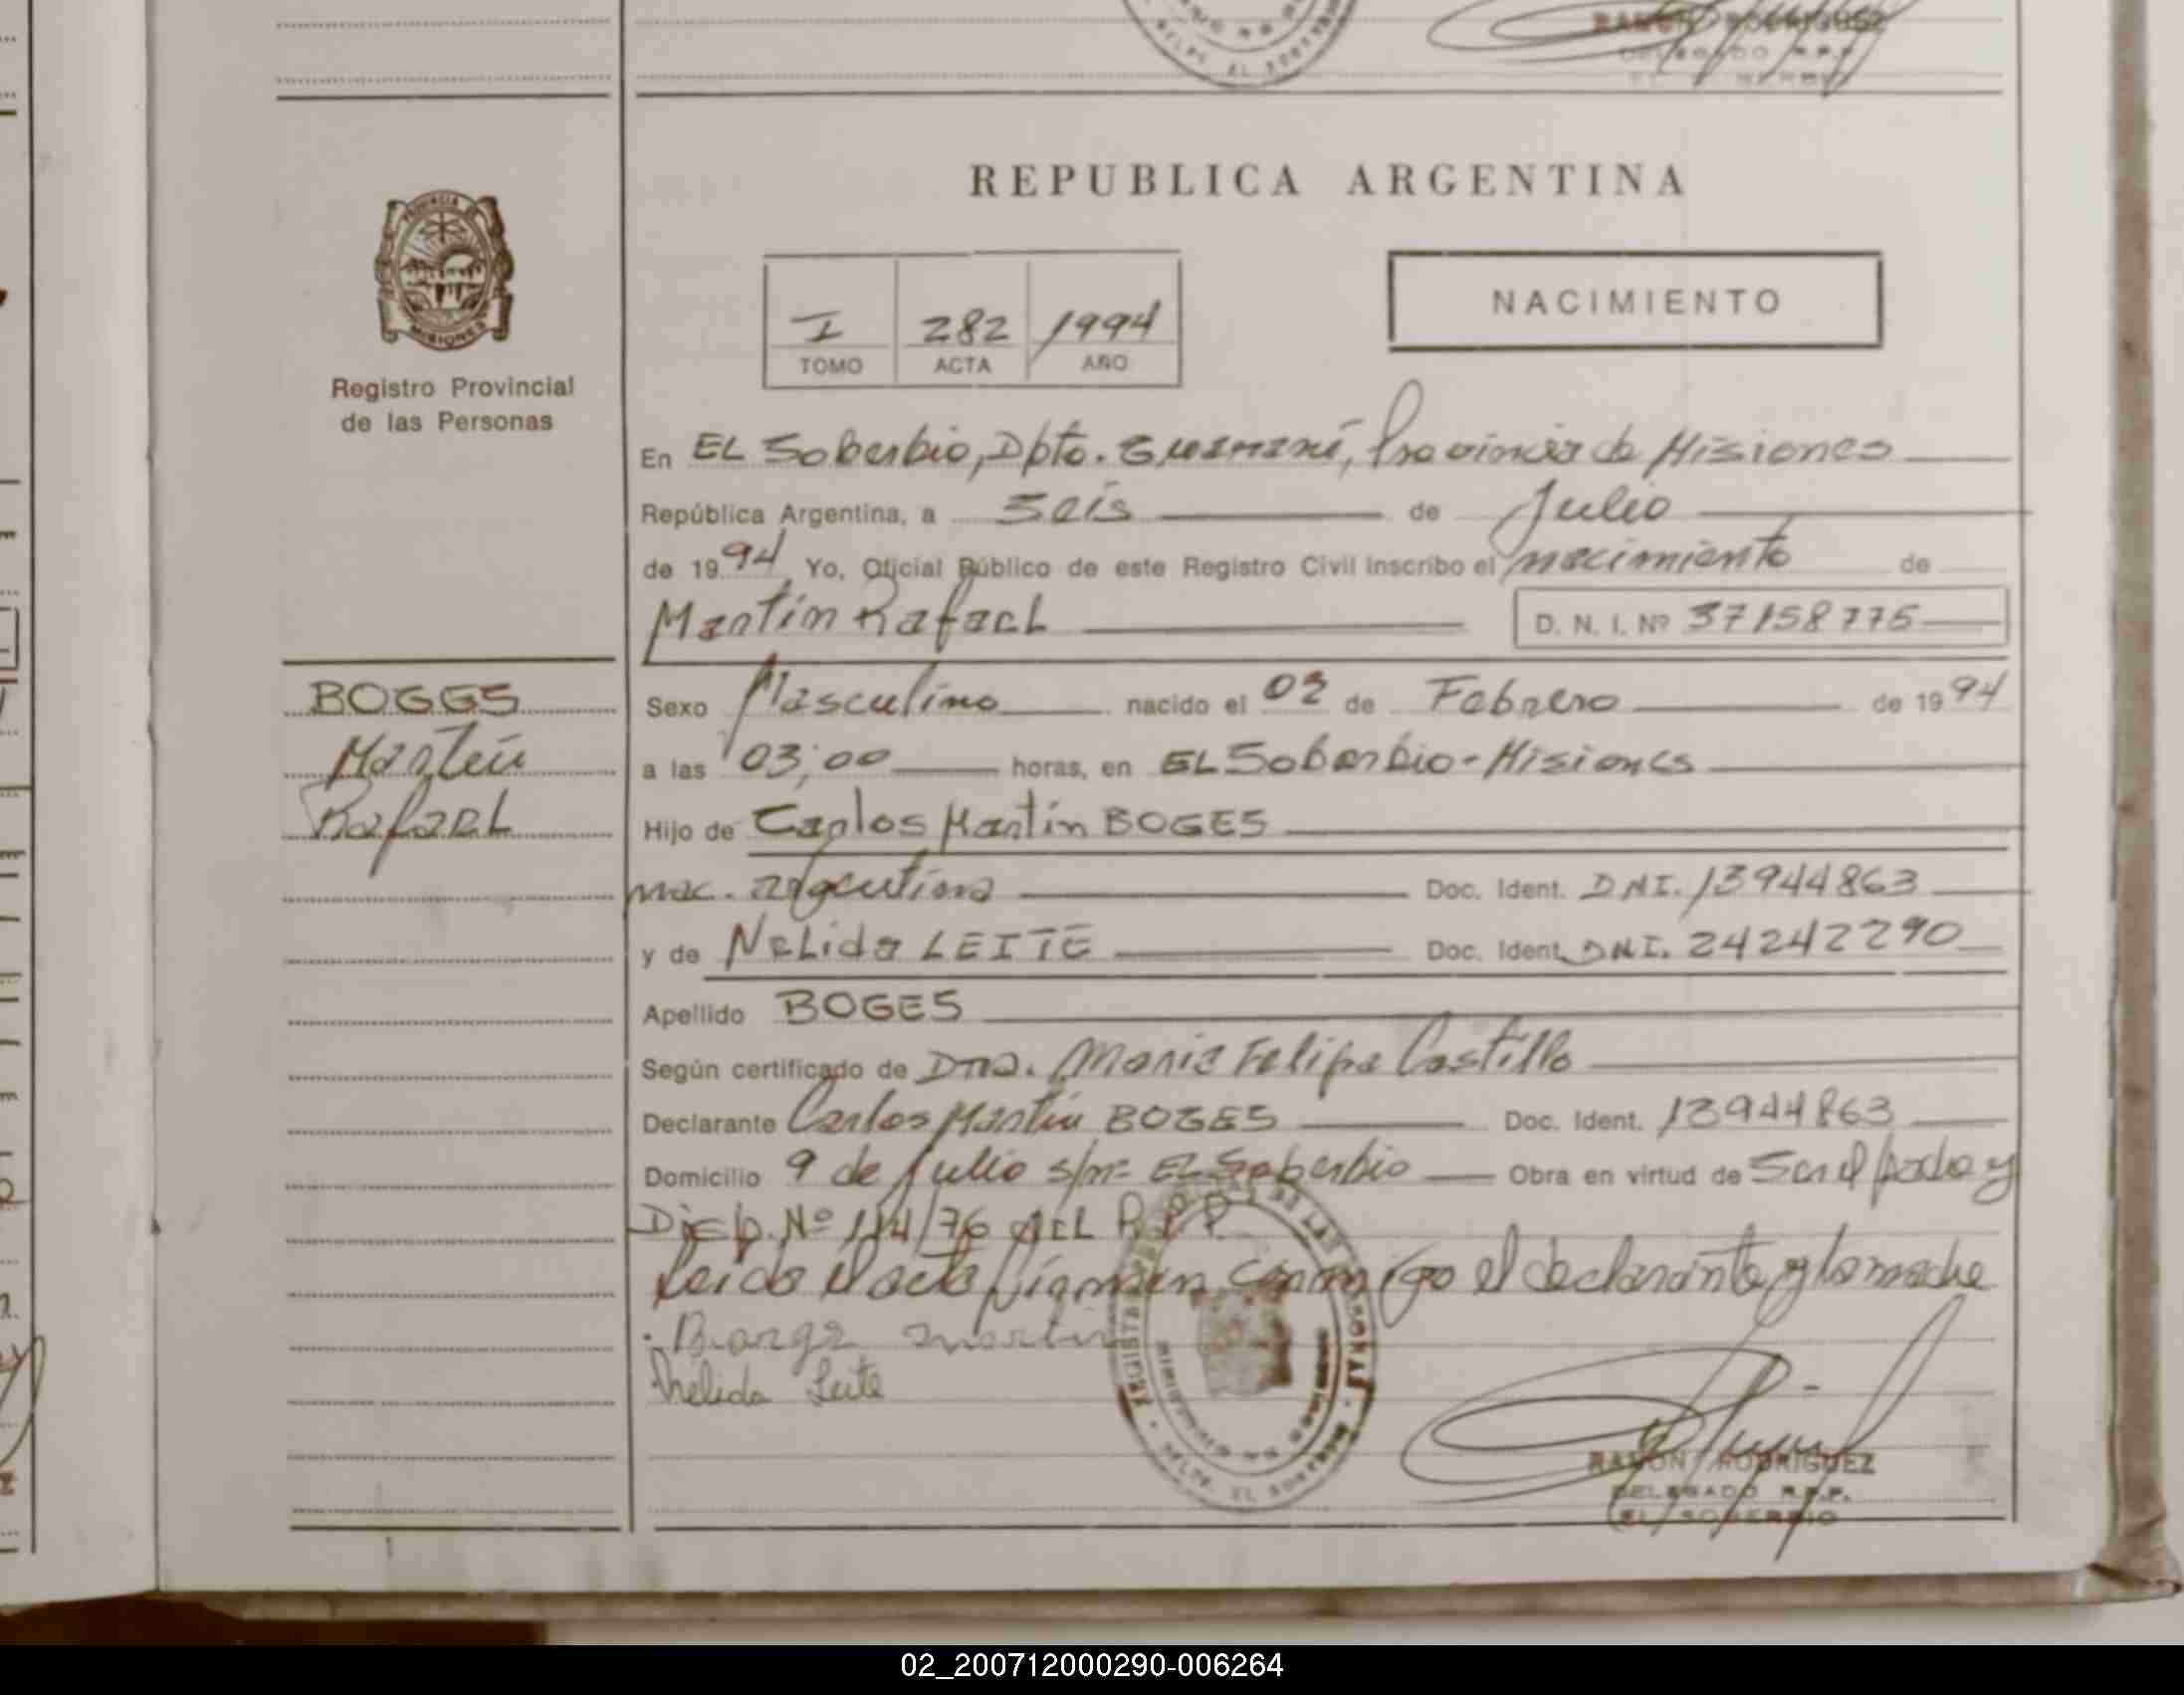 RAMON RODRIGUEZ
EL
REPUBLICA ARGENTINA
PROVINCIA DE
MISIONES
Registro Provincial
de las Personas
I 282 1994
TOMO ACTA AÑO
NACIMIENTO
En EL Soberbio, Dpto. Guaraní, Provincia de Misiones
República Argentina, a seis de Julio
de 1994 Yo, Oficial Público de este Registro Civil inscribo el nacimiento de
Martín Rafael D. N. I. Nº 37158775
BOGES
Martín
Rafael
Sexo Masculino nacido el 02 de Febrero de 1994
a las 03,00 horas, en EL Soberbio - Misiones
Hijo de Carlos Martín BOGES
nac. argentina Doc. Ident. DNI. 13944863
y de Nelida LEITE Doc. Ident. DNI. 24242290
Apellido BOGES
Según certificado de Dña. Maria Felipa Castillo
Declarante Carlos Martín BOGES Doc. Ident. 13944863
Domicilio 9 de Julio s/nº EL Soberbio Obra en virtud de Ser el padre y
Disp. Nº 114/76 del R.P.P.
Leida el acta firman conmigo el declarante y la madre
martin
Nelida Leite
RAMON RODRIGUEZ
DELEGADO R.P.P.
EL SOBERBIO
02_200712000290-006264